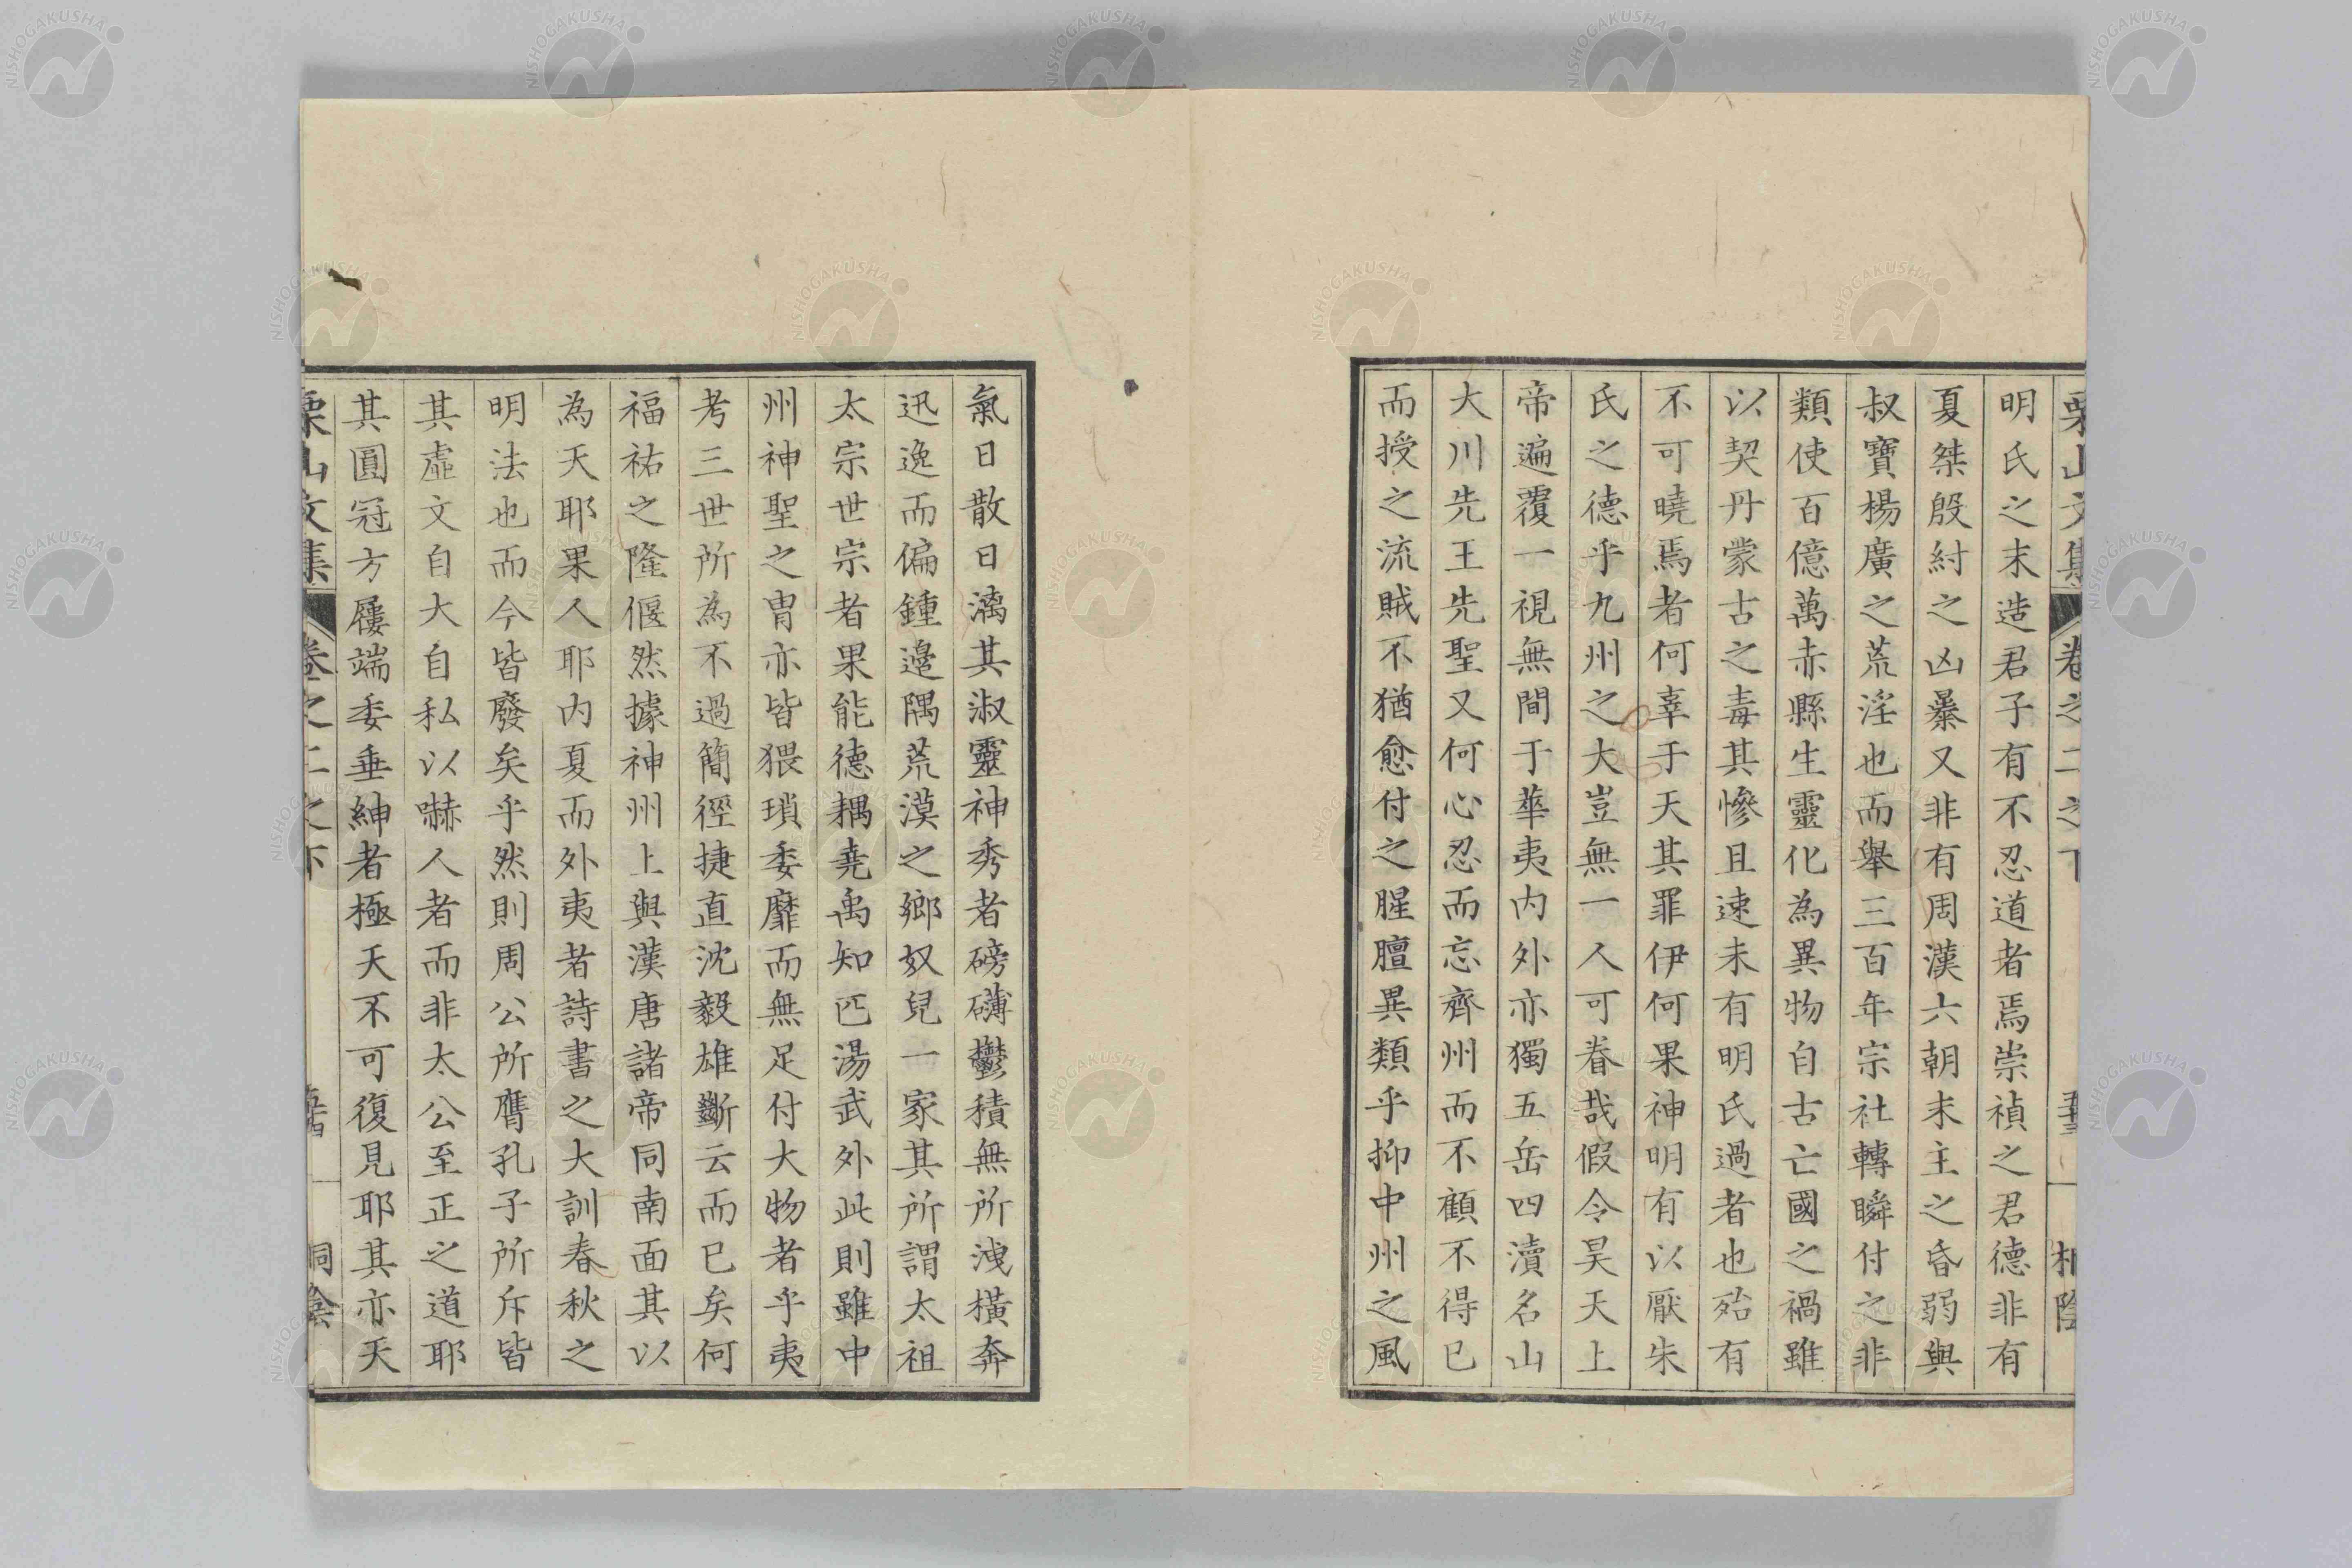 明氏之末造君子有不忍道者焉崇禎之君德非有
夏桀殷紂之凶暴又非有周漢六朝末主之昏弱與
叔寶楊廣之荒淫也而舉三百年宗社轉瞬付之非
類使百億萬赤縣生靈化為異物自古亡國之禍雖
以契丹蒙古之毒其慘且速未有明氏過者也殆有
不可曉焉者何辜于天其罪伊何果神明有以厭朱
氏之德乎九州之大豈無一人可眷哉假令昊天上
帝遍覆一視無間于華夷內外亦獨五岳四瀆名山
大川先王先聖又何心忍而忘齊州而不顧不得已
而授之流賊不猶愈付之腥膻異類乎抑中州之風
氣日散日漓其淑靈神秀者磅礴鬱積無所洩橫奔
迅逸而偏鍾邊隅荒漠之鄉奴兒一家其所謂太祖
太宗世宗者果能德耦堯禹知匹湯武外此則雖中
州神聖之冑亦皆猥瑣委靡而無足付大物者乎夷
考三世所為不過簡徑捷直沈毅雄斷云而已矣何
福祐之隆偃然據神州上與漢唐諸帝同南面其以
為天耶果人耶內夏而外夷者詩書之大訓春秋之
明法也而今皆廢矣乎然則周公所膺孔子所斥皆
其虛文自大自私以嚇人者而非太公至正之道耶
其圓冠方屨端委垂紳者極天不可復見耶其亦天
栗山文集 卷之二之下
NISHOGAKUSHA